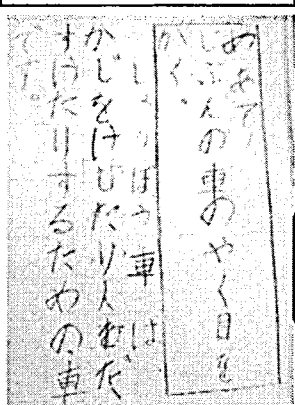 めあて
じぶんの車のやく目を
かく。
しょうぼう車は
かじをけしたり人をた
すけたりするための車
です。